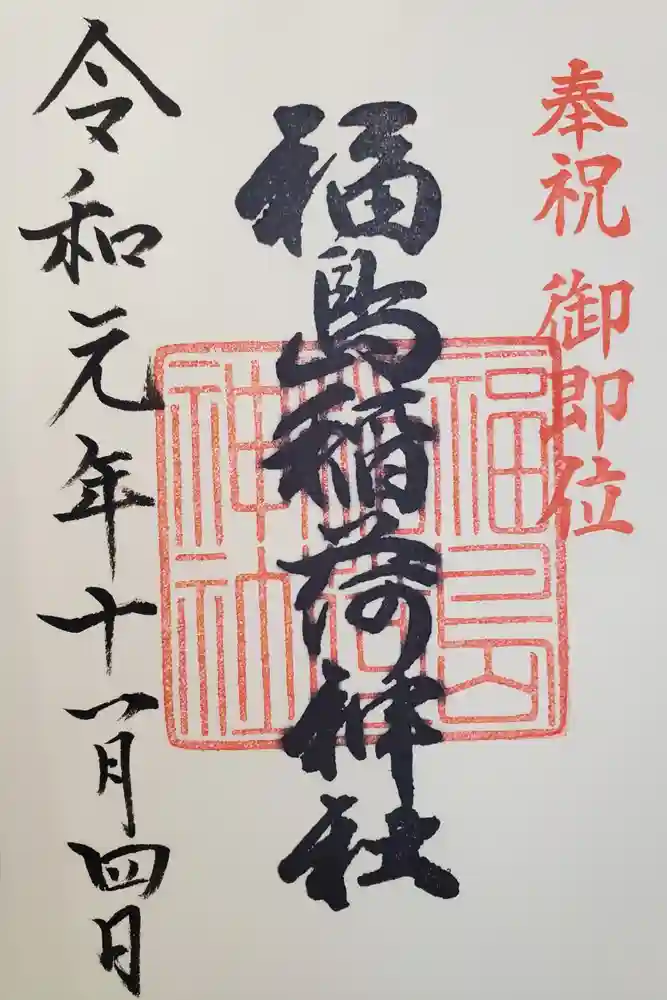 奉祝 御即位
福島稲荷神社
福島稲荷神社
令和元年十一月四日